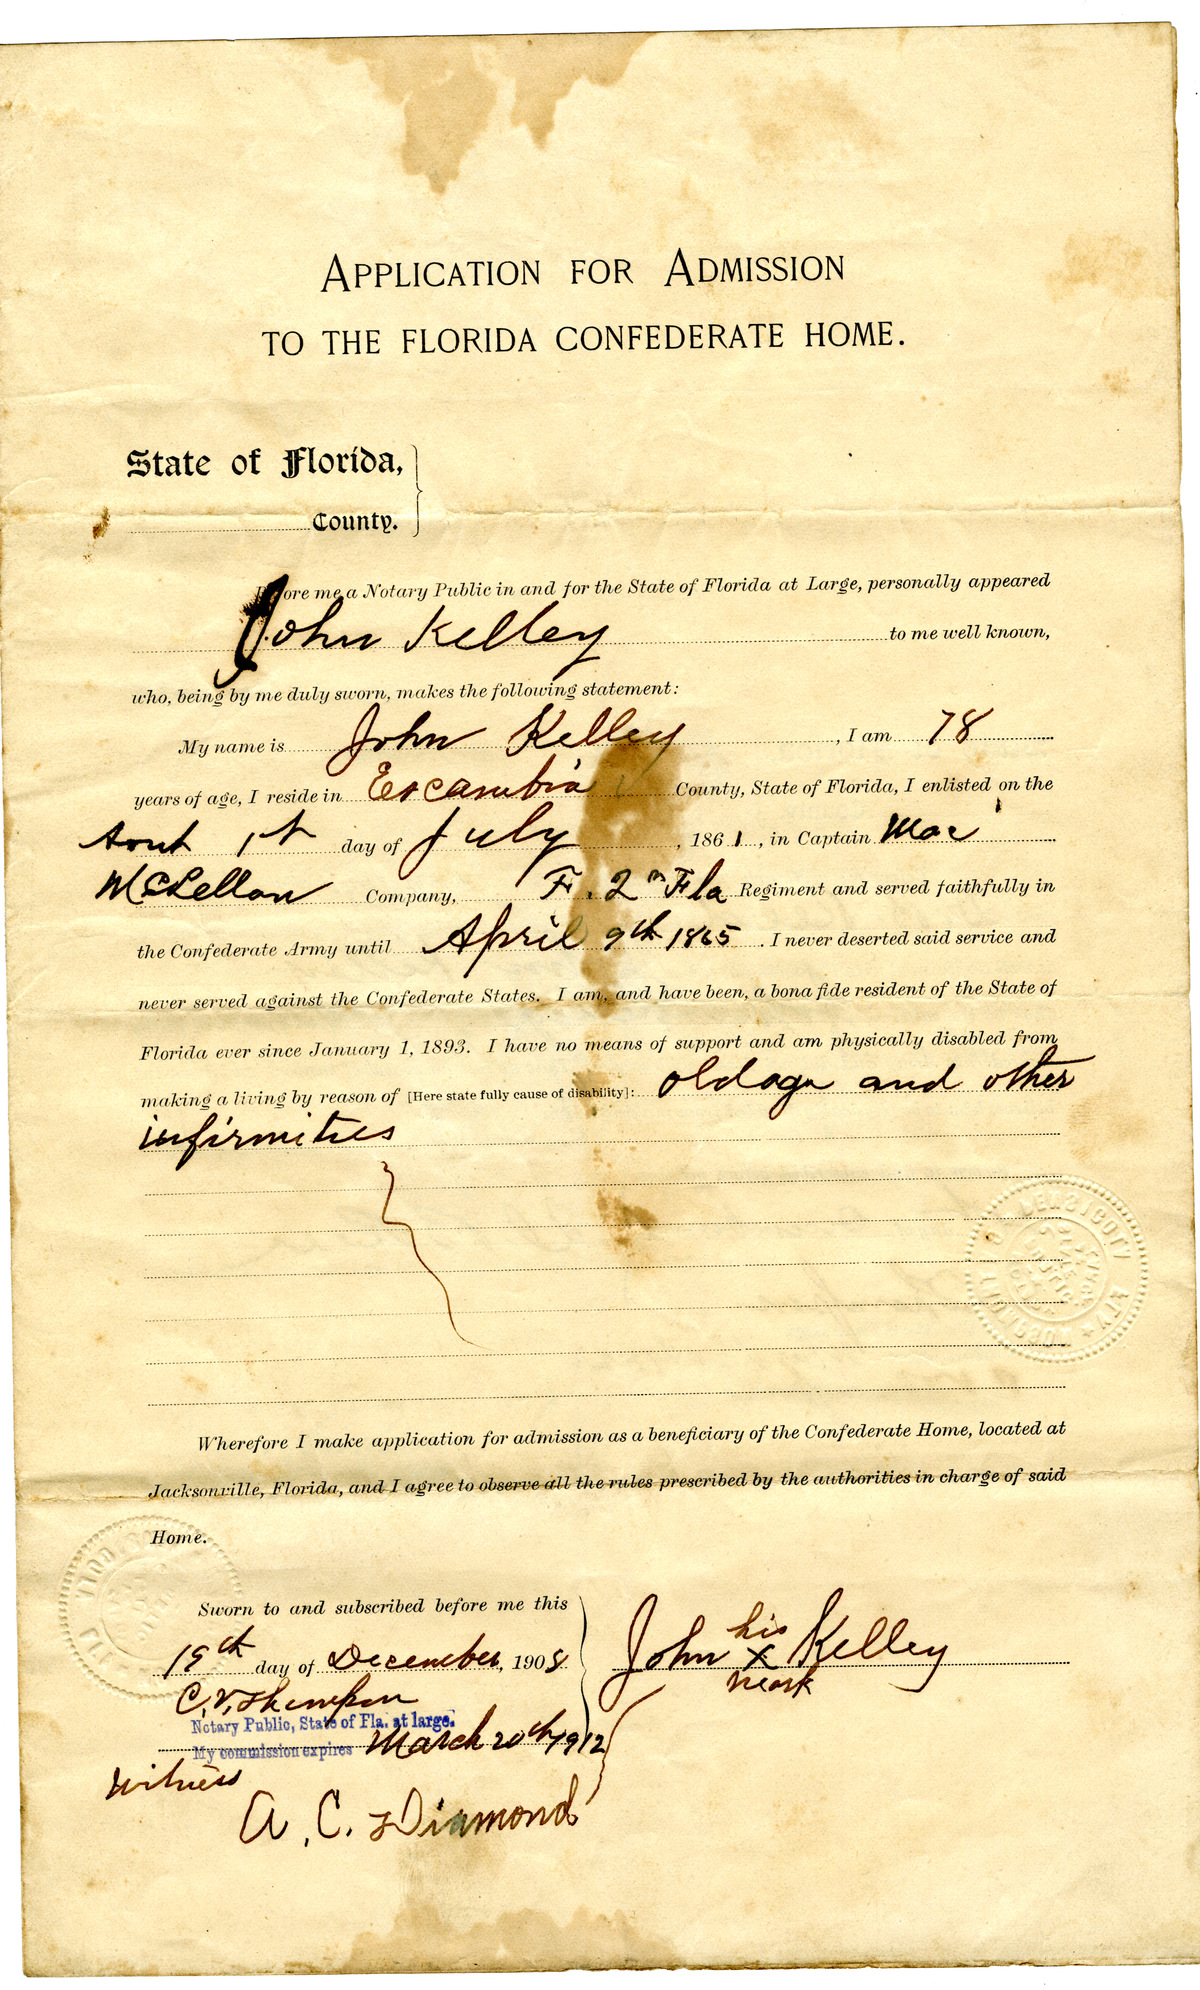 APPLICATION FOR ADMISSION
TO THE FLORIDA CONFEDERATE HOME.
State of Florida,
County.
ore me a Notary Public in and for the State of Florida at Large, personally appeared
John Kelley to me well known,
who, being by me duly sworn, makes the following statement:
My name is John Kelley, I am 78
years of age, I reside in Escambia County, State of Florida, I enlisted on the
1st day of July, 1861, in Captain Mac
McLellan Company, F. 2nd Fla Regiment and served faithfully in
the Confederate Army until April 9th 1865. I never deserted said service and
never served against the Confederate States. I am, and have been, a bona fide resident of the State of
Florida ever since January 1, 1893. I have no means of support and am physically disabled from
making a living by reason of [Here state fully cause of disability]: old age and other
infirmities
Wherefore I make application for admission as a beneficiary of the Confederate Home, located at
Jacksonville, Florida, and I agree to observe all the rules prescribed by the authorities in charge of said
Home.
Sworn to and subscribed before me this
19th day of December, 1908.
John his x mark Kelley
C. V. Thompson
Notary Public, State of Fla. at large.
My commission expires March 20th 1912
Witness
A. C. Diamond